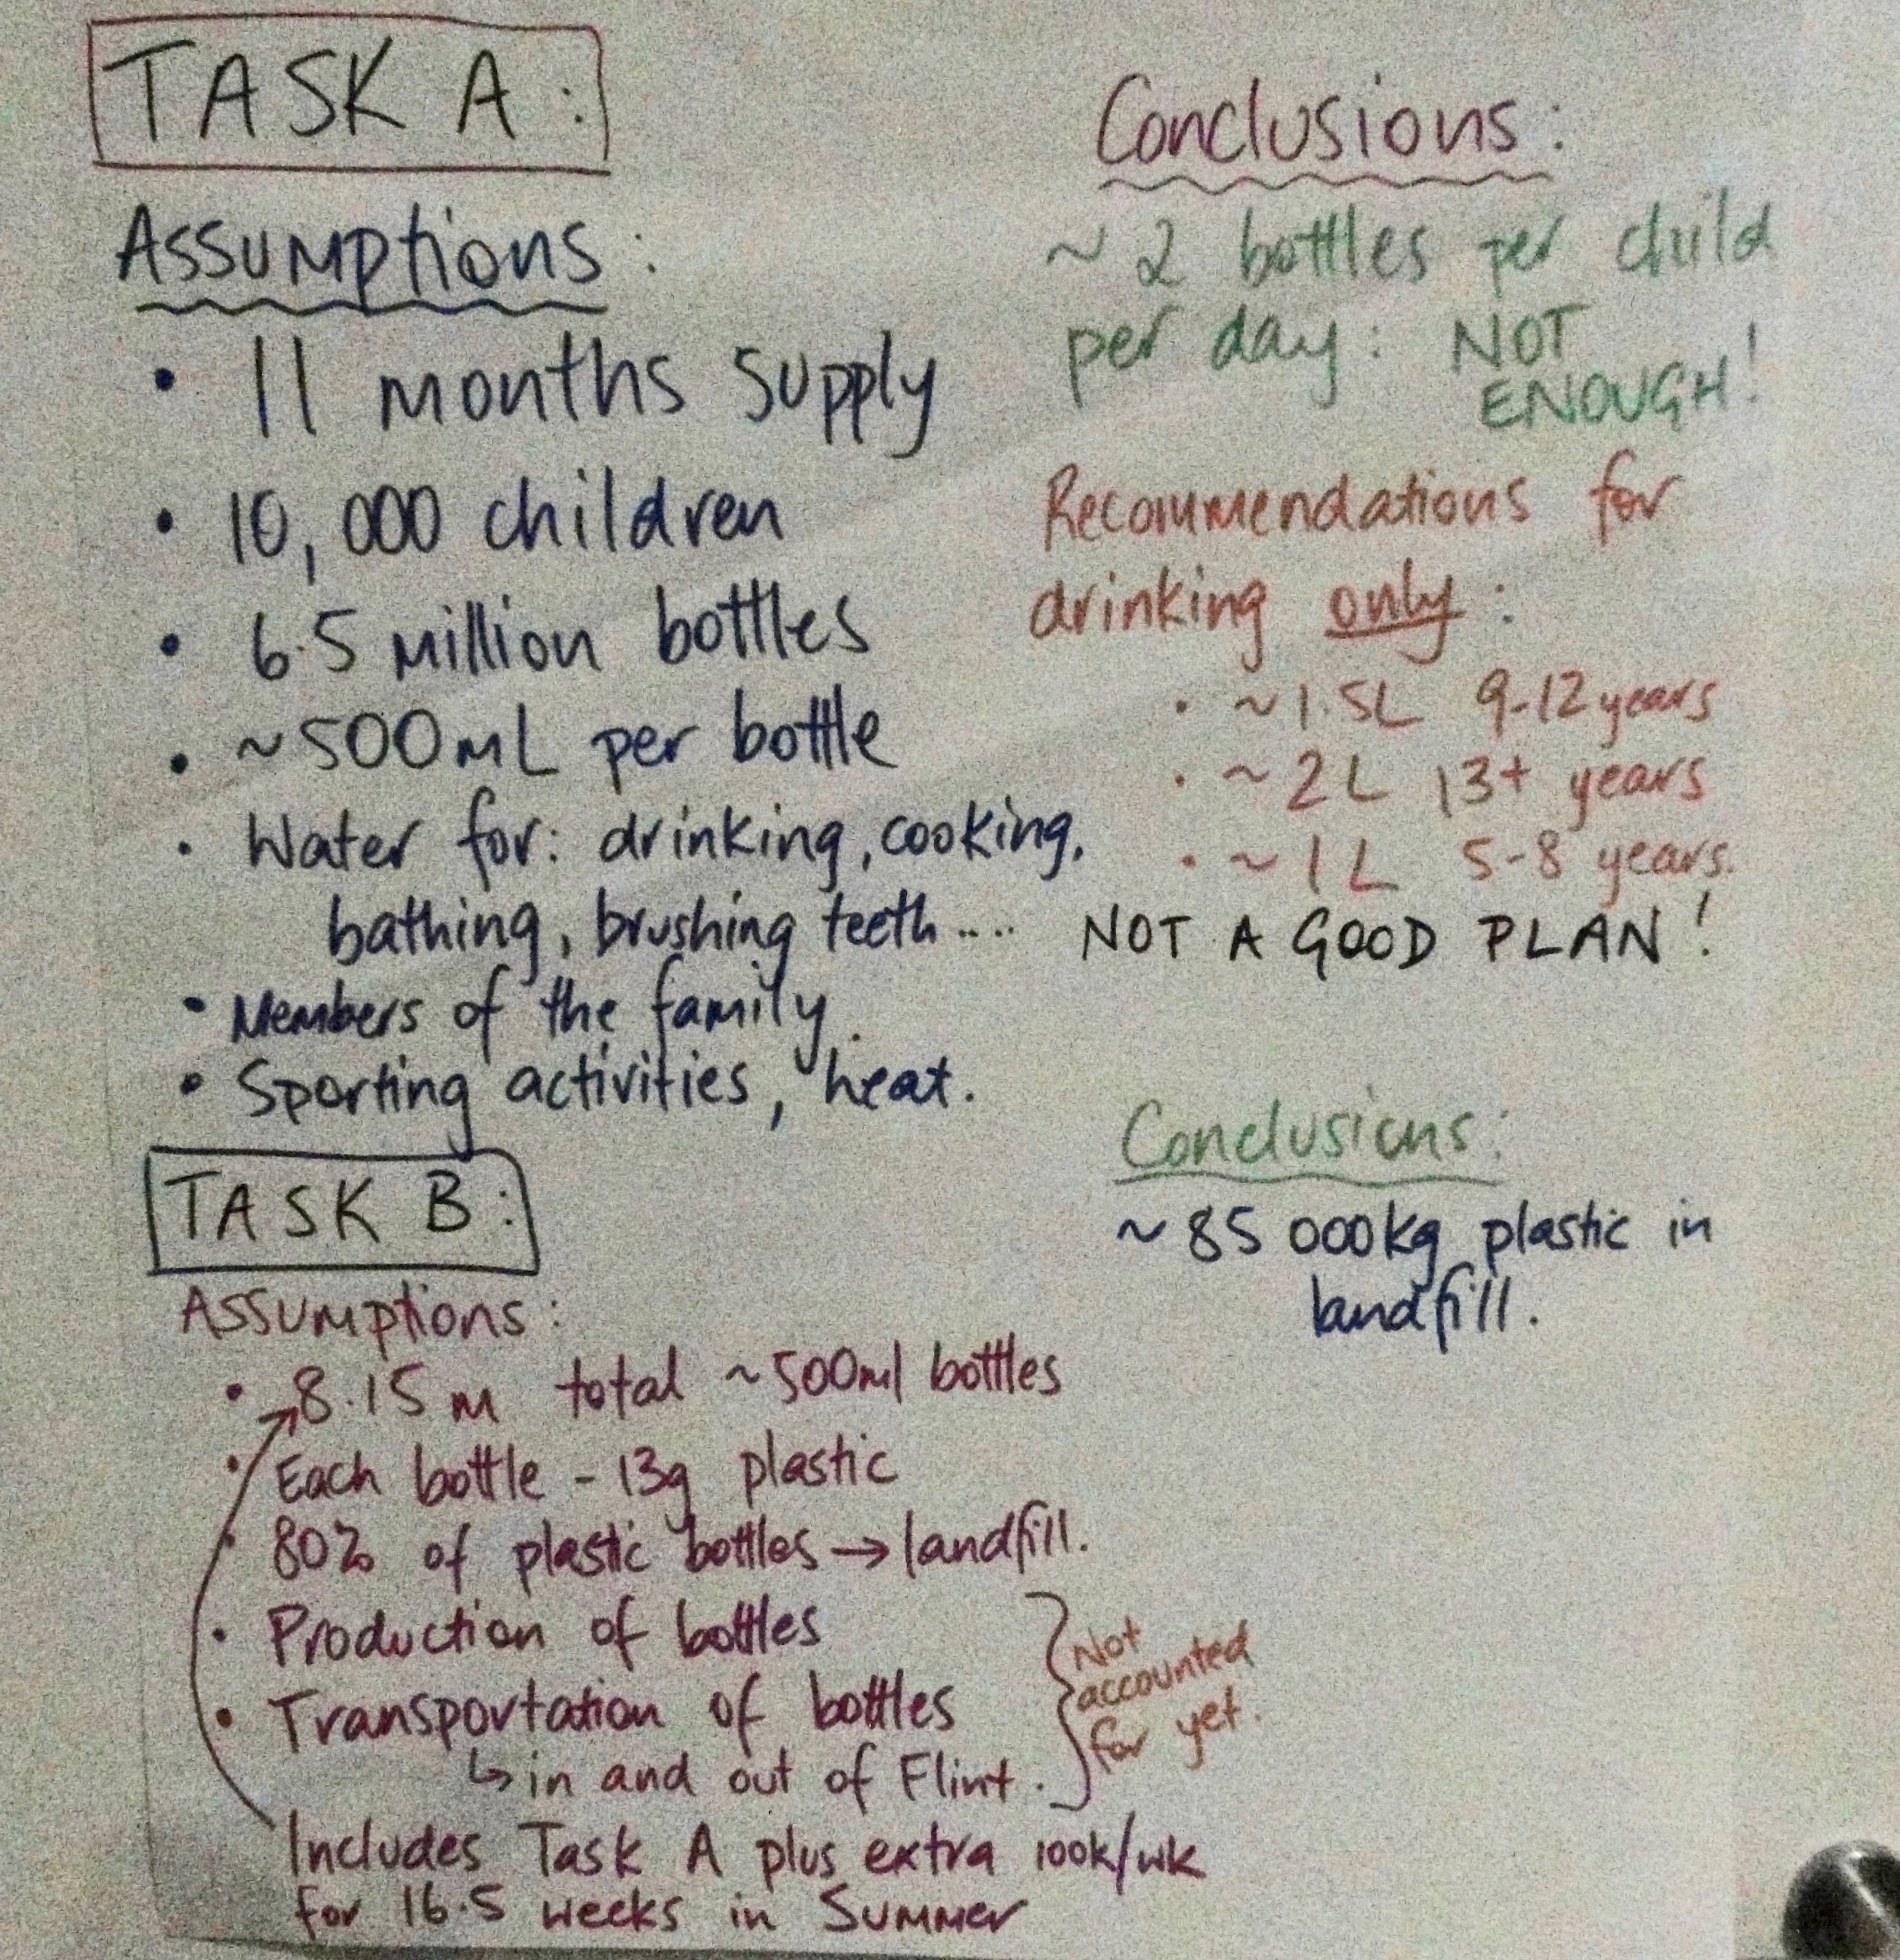 TASK A:
Assumptions:
• 11 months supply
• 10,000 children
• 6.5 million bottles
• ~500mL per bottle
• Water for: drinking, cooking,
bathing, brushing teeth ....
• Members of the family.
• Sporting activities, heat.
Conclusions:
~ 2 bottles per child
per day: NOT
ENOUGH!
Recommendations for
drinking only:
• ~1.5L 9-12 years
• ~2L 13+ years
• ~1L 5-8 years.
NOT A GOOD PLAN!
TASK B:
Assumptions:
• 8.15 m total ~500ml bottles
• Each bottle - 13g plastic
• 80% of plastic bottles → landfill.
• Production of bottles
• Transportation of bottles
↳ in and out of Flint.
Not
accounted
for yet.
Includes Task A plus extra 100k/wk
for 16.5 weeks in Summer
Conclusions:
~ 85 000kg plastic in
landfill.